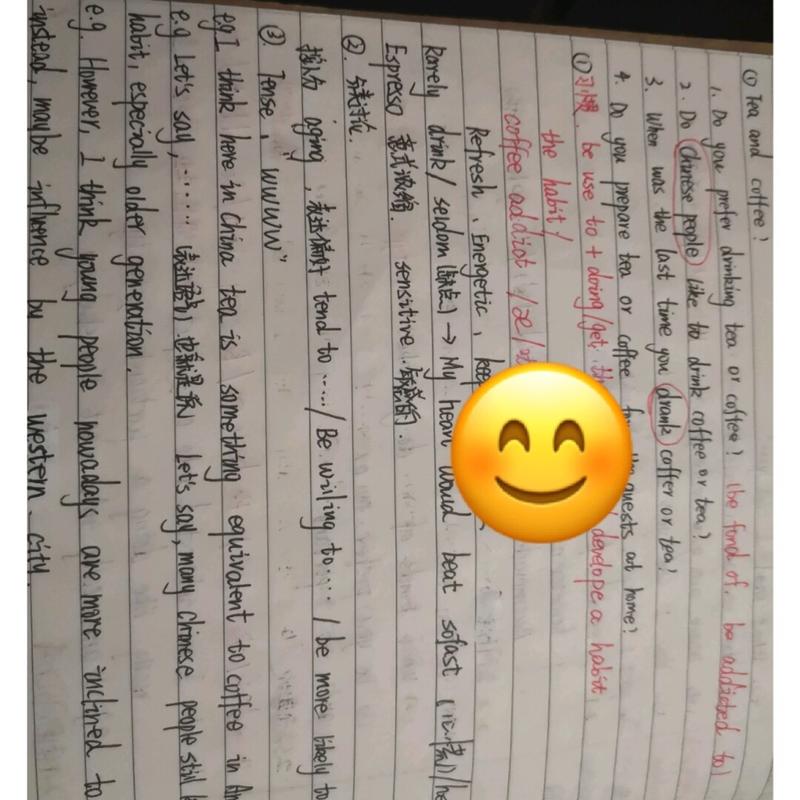 ① Tea and coffee?
1. Do you prefer drinking tea or coffee? (be fond of, be addicted to)
2. Do Chinese people like to drink coffee or tea?
3. When was the last time you drank coffer or tea?
4. Do you prepare tea or coffee guests at home?
① 习惯. be use to + doing/get develope a habit
the habit/
coffee addict /
Refresh, Energetic,
Rarely drink/ seldom (缺点) → My heart would beat sofast
Espresso 意式浓缩. sensitive 敏感的.
②. 分类讨论.
aging, 表达偏好 tend to ...../ Be wiling to..... / be more likely to
③. Tense, "WWWW"
e.g I think here in China tea is something equivalent to coffee in
e.g Let's say, ...... 也就是说 Let's say, many Chinese people still
habit, especially older generation.
e.g. However, I think young people nowadays are more inclined to
instead, maybe influence by the western city.